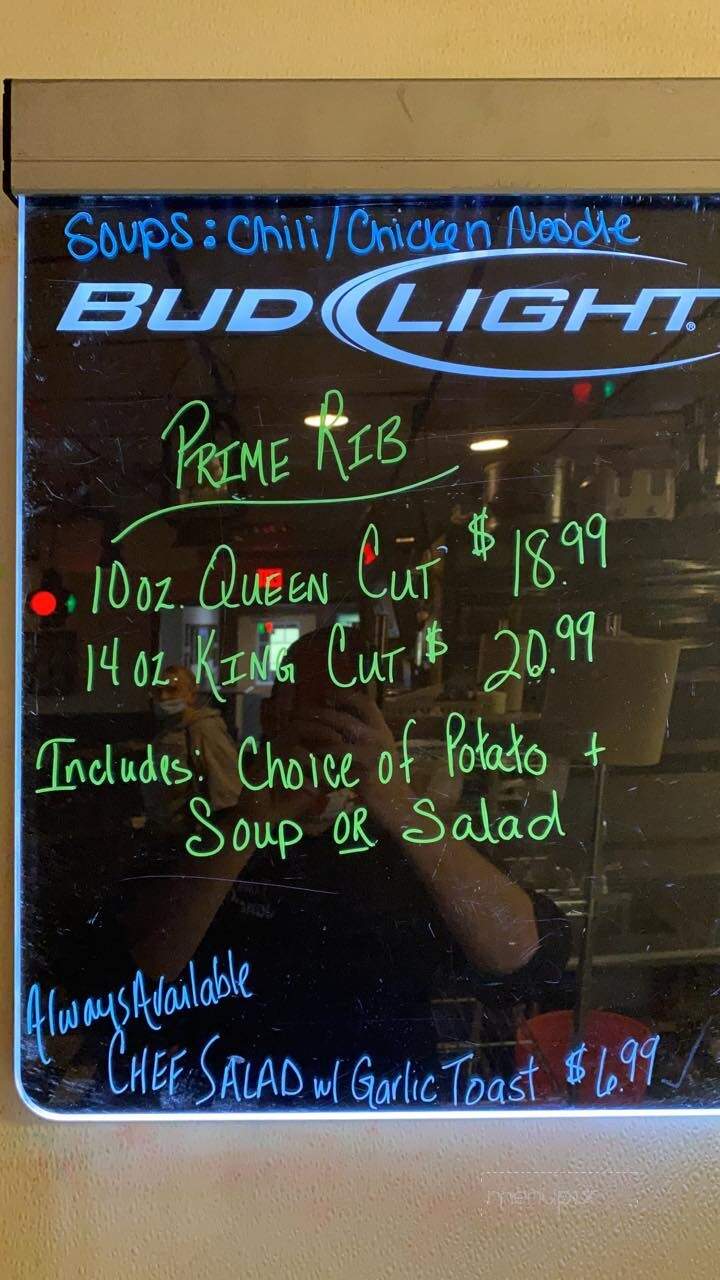 Soups: Chili/Chicken Noodle
BUD LIGHT®
PRIME RIB
10 oz. QUEEN CUT $18.99
14 oz. KING CUT $20.99
Includes: Choice of Potato +
Soup OR Salad
Always Available
CHEF SALAD w/ Garlic Toast $6.99
menupix